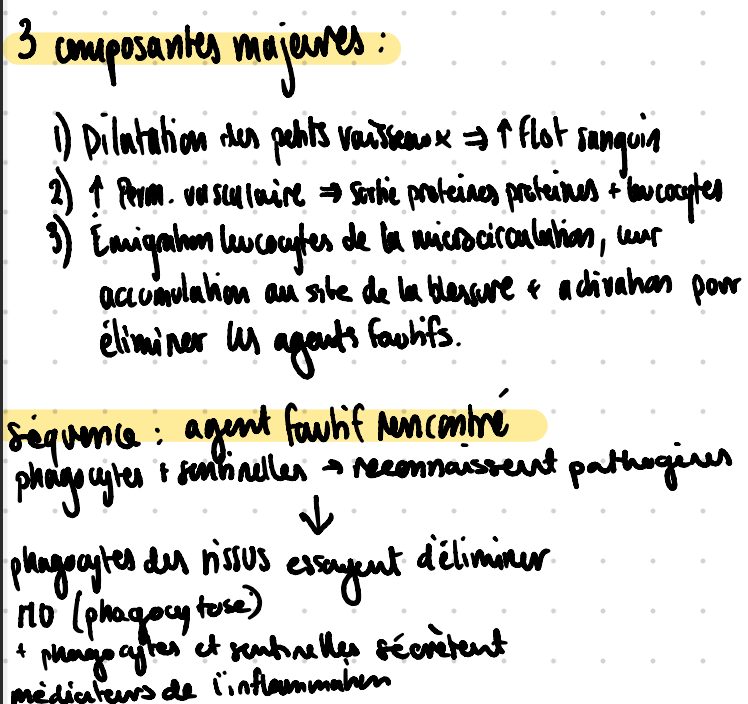 3 composantes majeures :
1) Dilatation des petits vaisseaux ⇒ ↑ flot sanguin
2) ↑ Perm. vasculaire ⇒ sortie proteines proteines + leucocytes
3) Émigration leucocytes de la microcirculation, leur
accumulation au site de la blessure + activation pour
éliminer les agents fautifs.
séquence : agent fautif rencontré
phagocytes + sentinelles → reconnaissent pathogènes
↓
phagocytes des tissus essayent d'éliminer
MO (phagocytose)
+ phagocytes et sentinelles sécrètent
médiateurs de l'inflammation